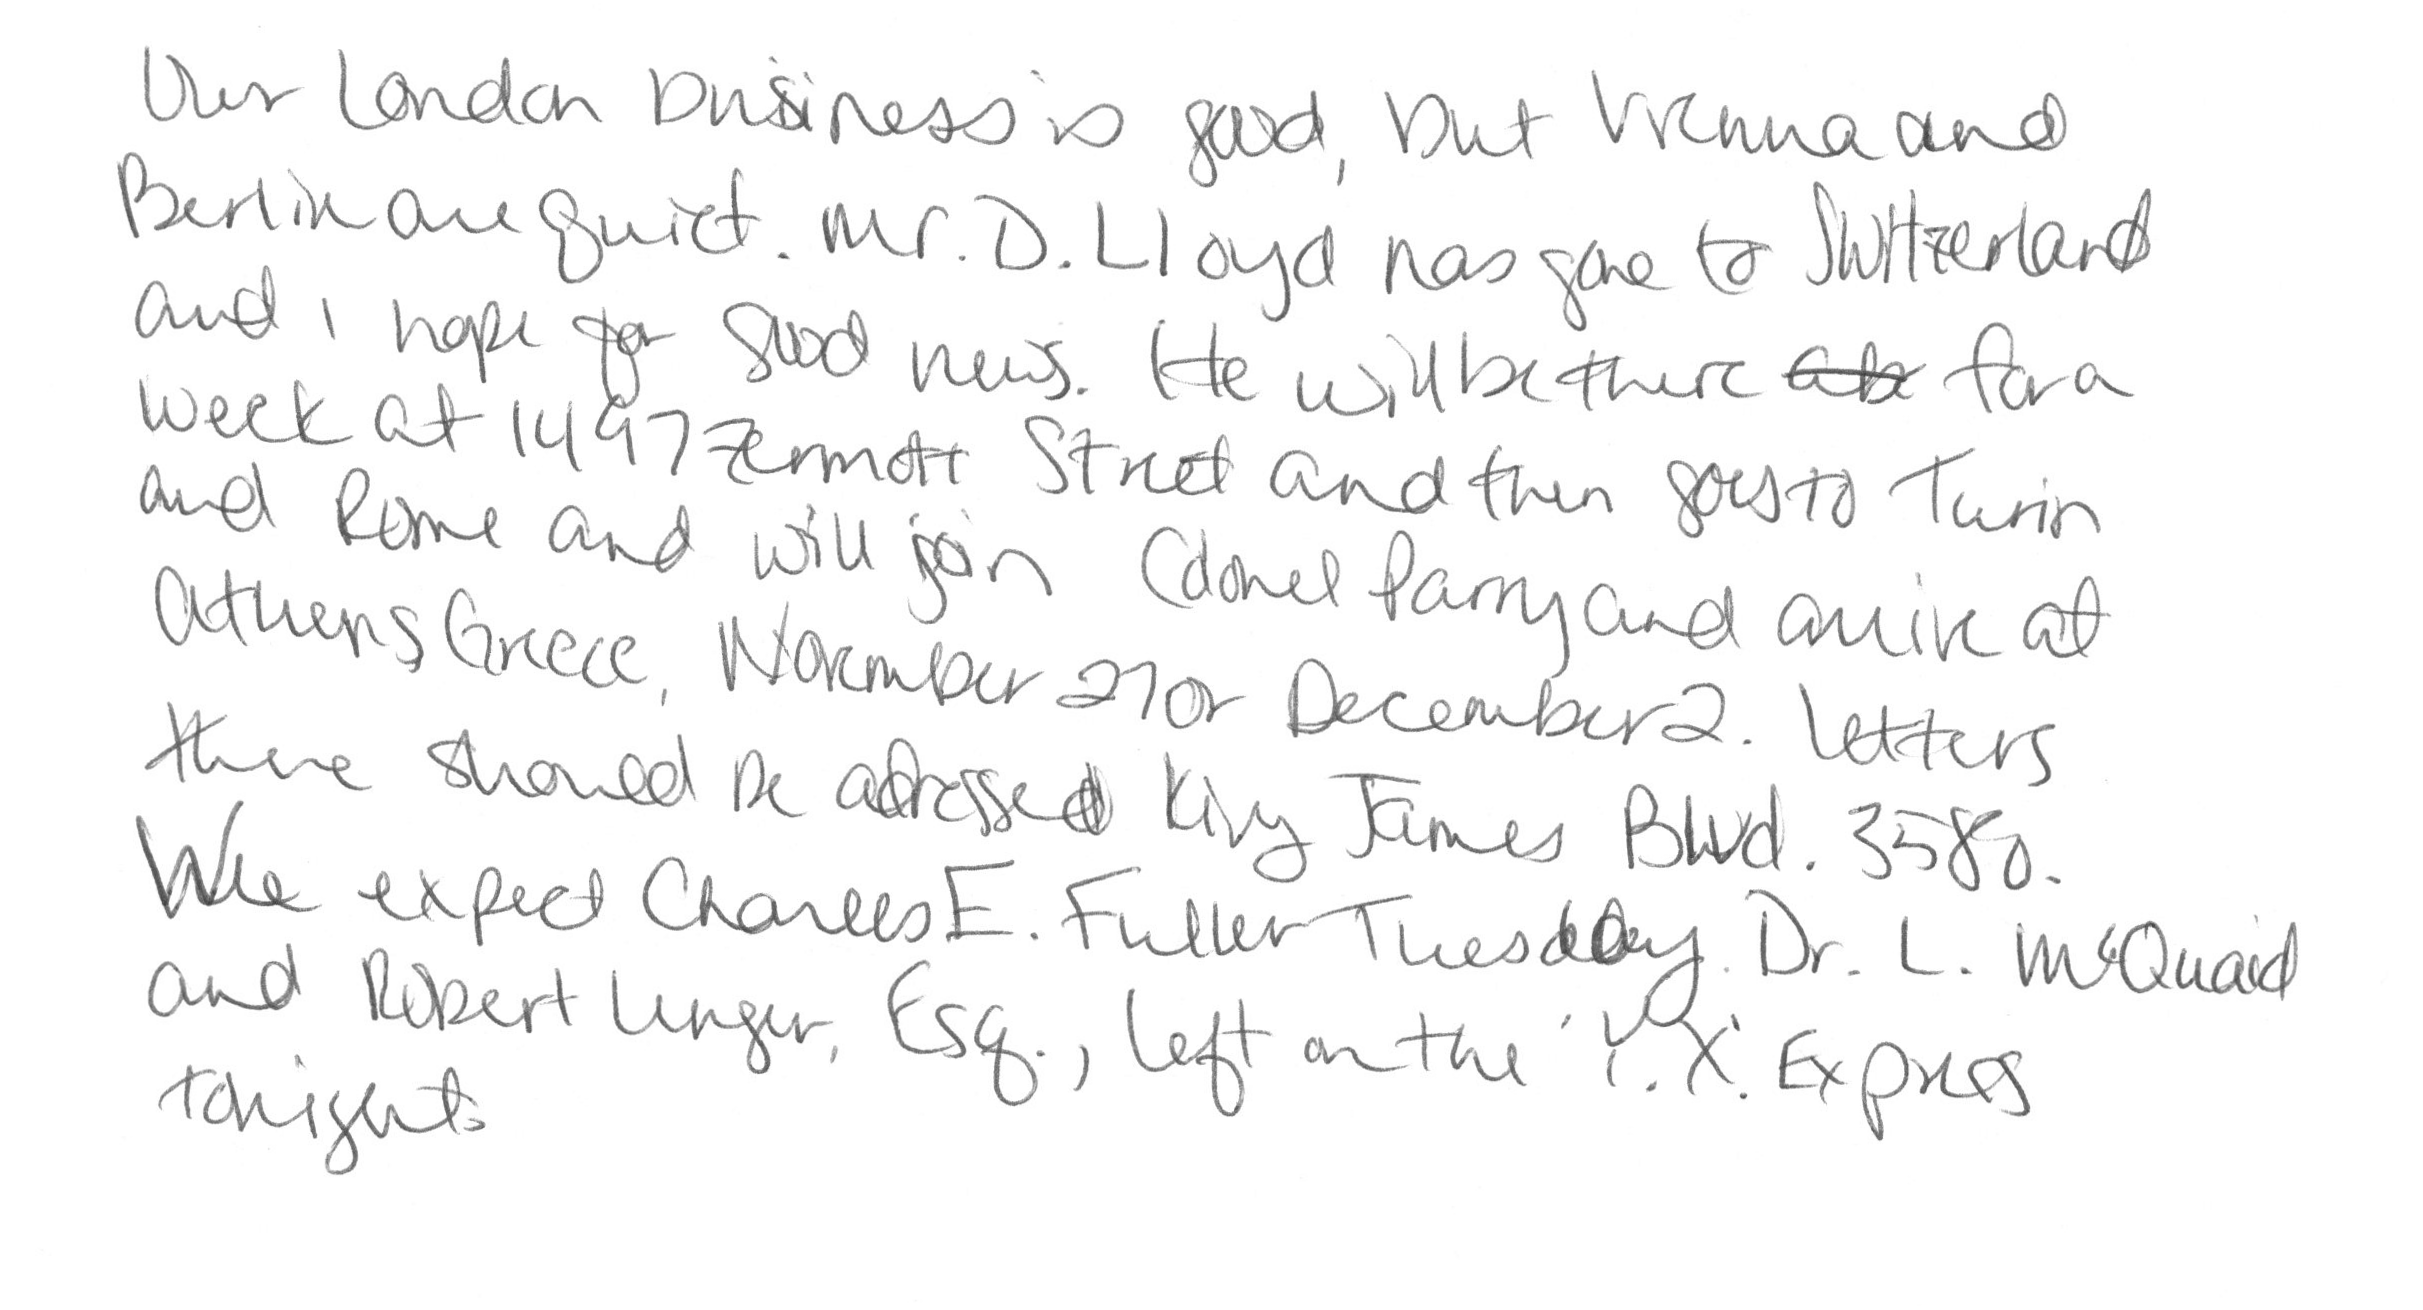 Our London business is good, but Vienna and
Berlin are quiet. Mr. D. Lloyd has gone to Switzerland
and I hope for good news. He will be there for a
week at 1497 Zermott Street and then goes to Turin
and Rome and will join Colonel Parry and arrive at
Athens, Greece, November 27 or December 2. Letters
there should be adressed King James Blvd. 3580.
We expect Charles E. Fuller Tuesday. Dr. L. McQuaid
and Robert Unger, Esq., left on the 'Y. X. Express
tonight.